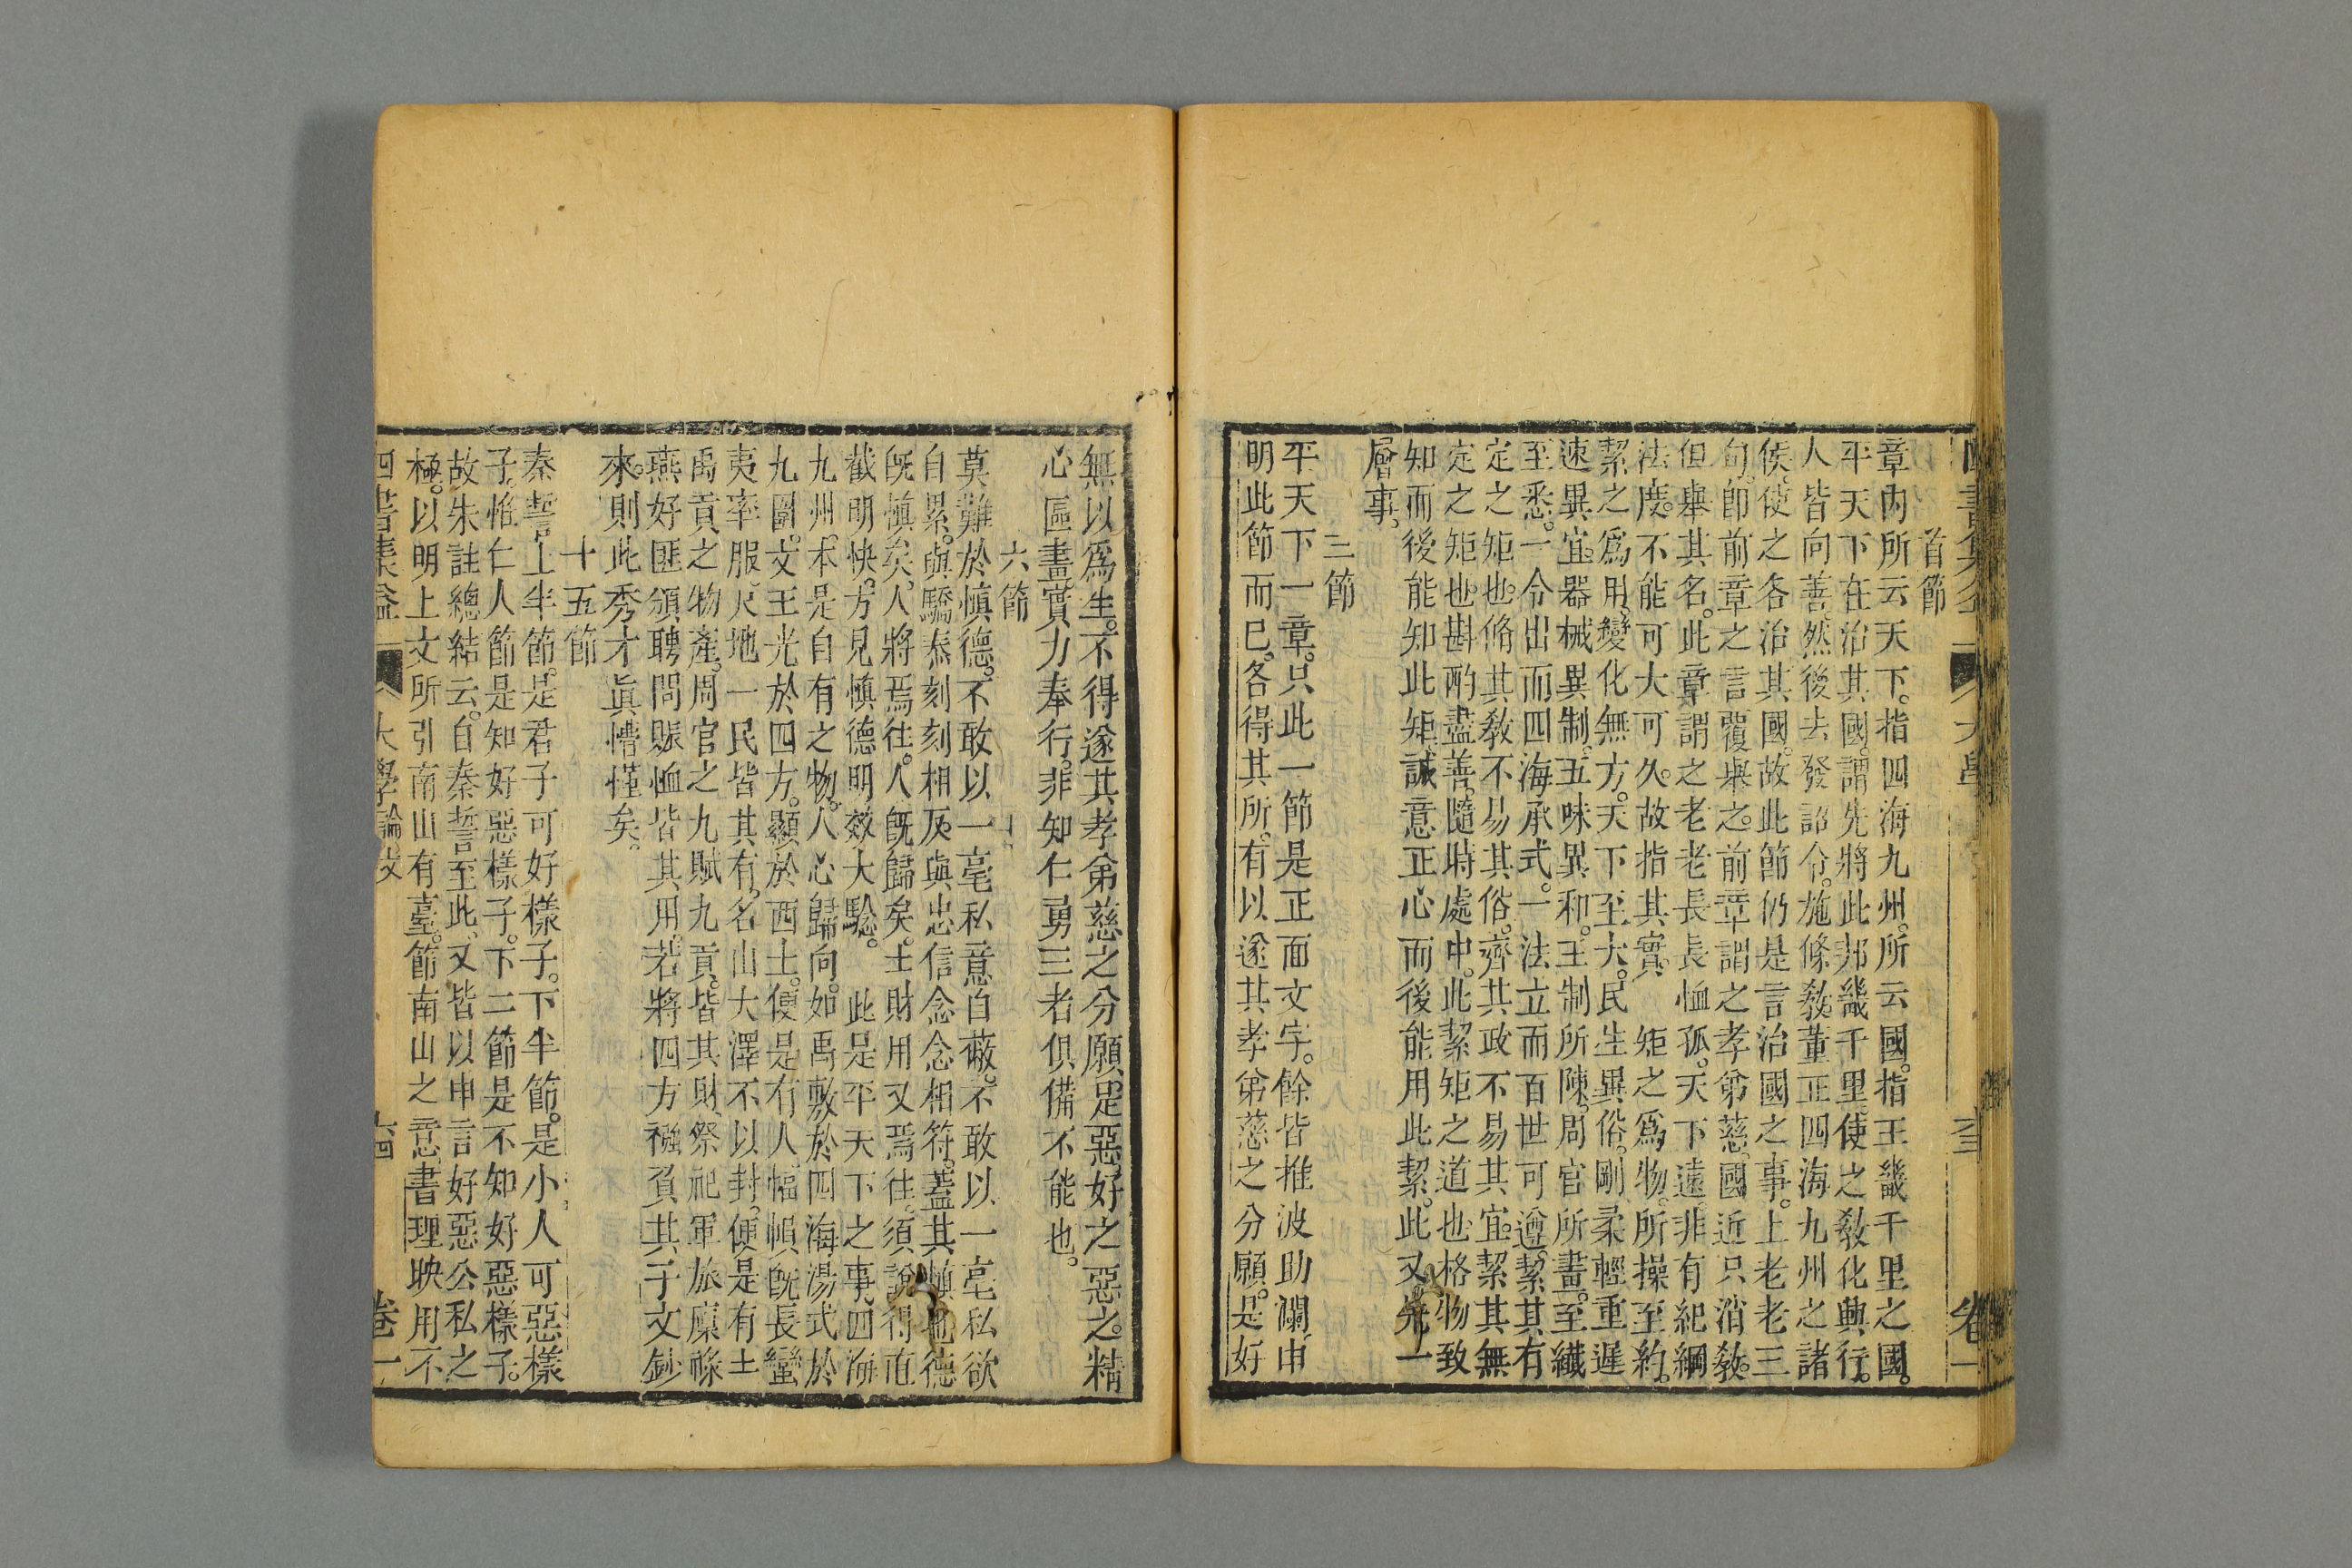 首節
章內所云天下。指四海九州。所云國。指王畿千里之國。
平天下在治其國。謂先將此邦畿千里。使之敎化興行。
人皆向善。然後去發詔令。施條敎。董正四海九州之諸
侯。使之各治其國。故此節仍是言治國之事。上老老三
句。卽前章之言覆舉之。前章謂之孝弟慈。國近只消敎。
但舉其名。此章謂之老老長長恤孤。天下遠。非有紀綱
法度。不能可大可久。故指其實。 矩之爲物。所操至約。
絜之爲用。變化無方。天下至大。民生異俗。剛柔輕重遲
速異宜。器械異制。五味異和。王制所陳。周官所畫。至纖
至悉。一令出而四海承式。一法立而百世可遵。絜其有
定之矩也。脩其敎不易其俗。齊其政不易其宜。絜其無
定之矩也。斟酌盡善。隨時處中。此絜矩之道也。格物致
知而後能知此矩。誠意正心而後能用此絜。此又先一
層事。
三節
平天下一章。只此一節是正面文字。餘皆推波助瀾。由
明此節而已。各得其所。有以遂其孝弟慈之分願。是好
四書集益 大學 六三 卷一
無以爲生。不得遂其孝弟慈之分願。是惡。好之惡之。精
心區畫實力奉行。非知仁勇三者俱備不能也。
六節
莫難於愼德。不敢以一毫私意自蔽。不敢以一毫私欲
自累。與驕泰刻刻相反。與忠信念念相符。蓋其愼也德
既愼矣。人將焉往。人既歸矣。土財用又焉往。須說得直
截明快。方見愼德明效大驗。 此是平天下之事。四海
九州。本是自有之物。人心歸向。如禹敷於四海湯式於
九圍。文王光於四方。顯於西土。便是有人。幅幀既長。蠻
夷率服。尺地一民皆其有。名山大澤不以封。便是有土
禹貢之物產。周官之九賦九貢。皆其財。祭祀軍旅廩祿
燕好匪頒聘問賑恤皆其用。若將四方襁負其子文鈔
來。則此秀才眞懵懂矣。
十五節
秦誓上半節。是君子可好樣子。下半節。是小人可惡樣
子。惟仁人節是知好惡樣子。下二節是不知好惡樣子。
故朱註總結云。自秦誓至此。又皆以申言好惡公私之
極。以明上文所引南山有臺。節南山之意。書理映用不
四書集益 大學論文 六四 卷一